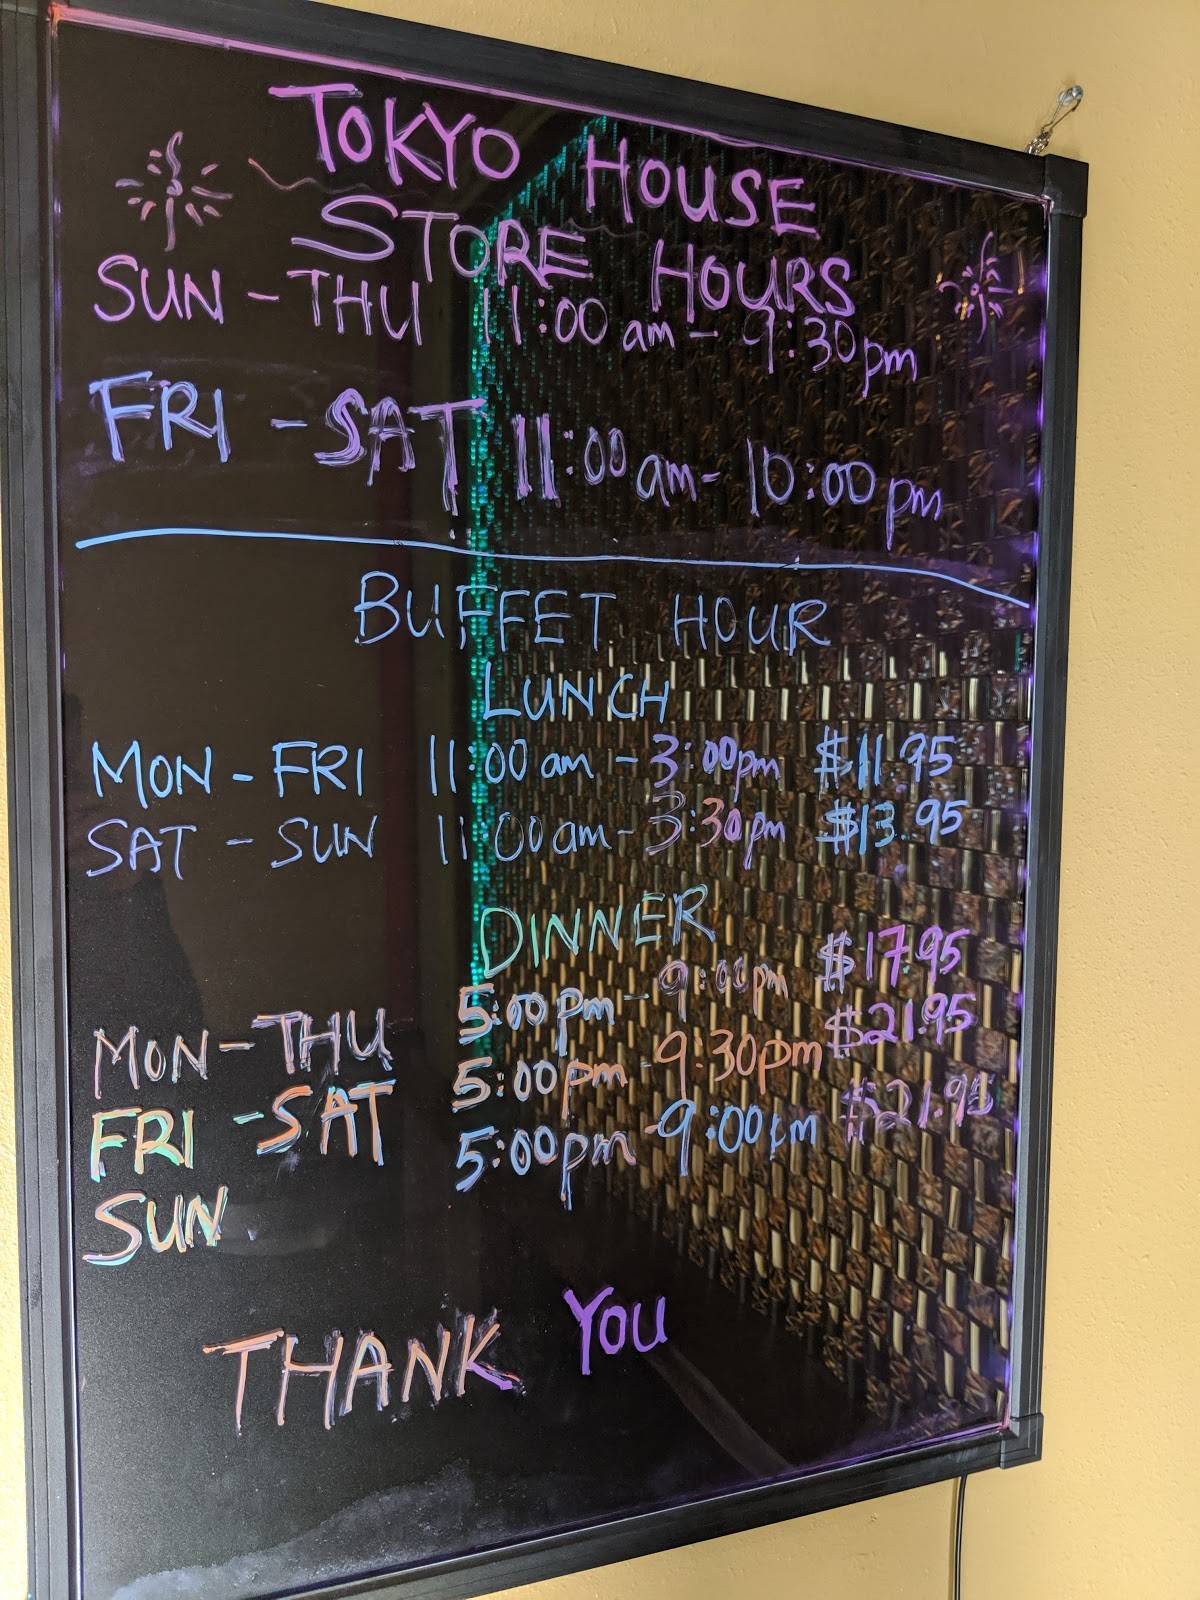 TOKYO HOUSE
STORE HOURS
SUN - THU 11:00 am - 9:30 pm
FRI - SAT 11:00 am - 10:00 pm
BUFFET HOUR
LUNCH
MON - FRI 11:00 am - 3:00 pm $11.95
SAT - SUN 11:00 am - 3:30 pm $13.95
DINNER
MON - THU 5:00 pm - 9:00 pm $17.95
FRI - SAT 5:00 pm - 9:30 pm $21.95
SUN 5:00 pm - 9:00 pm $21.95
THANK YOU